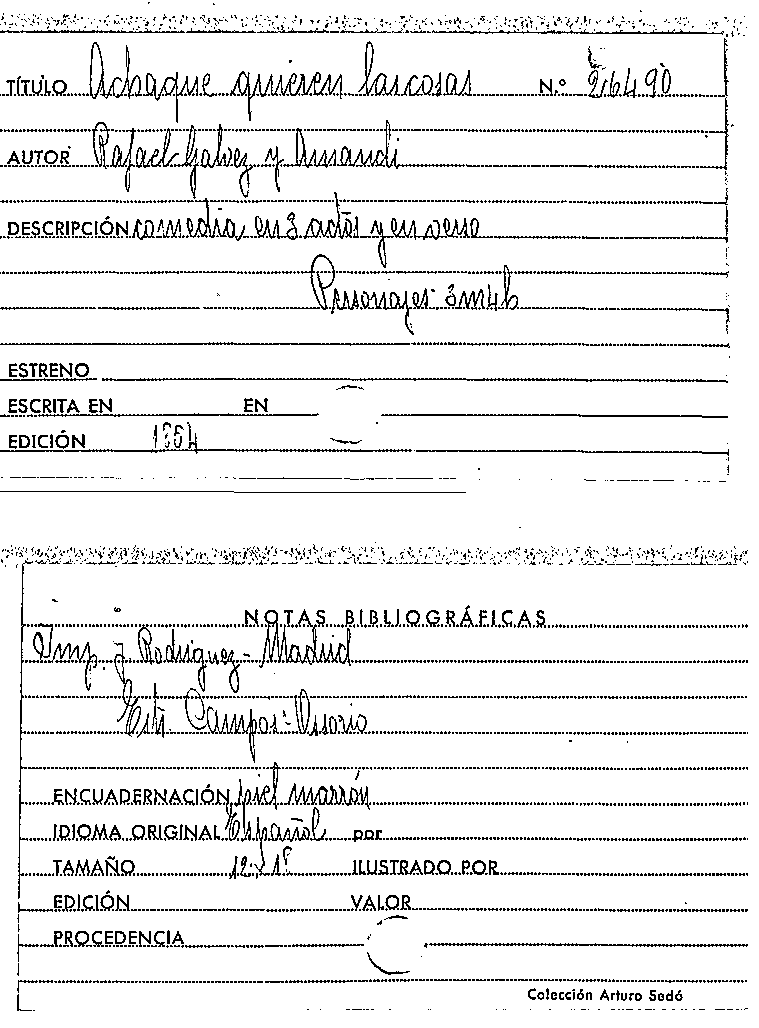 TÍTULO Achaque quieren las cosas N.º 26490
AUTOR Rafael Galvez y Amandi
DESCRIPCIÓN comedia en 3 actos y en verso
Personajes 3m4h
ESTRENO
ESCRITA EN EN
EDICIÓN 1864
NOTAS BIBLIOGRÁFICAS
Imp. J Rodriguez - Madrid
Campos-Ossorio
ENCUADERNACIÓN piel marrón
IDIOMA ORIGINAL Español por
TAMAÑO ILUSTRADO POR
EDICIÓN VALOR
PROCEDENCIA
Colección Arturo Sedó